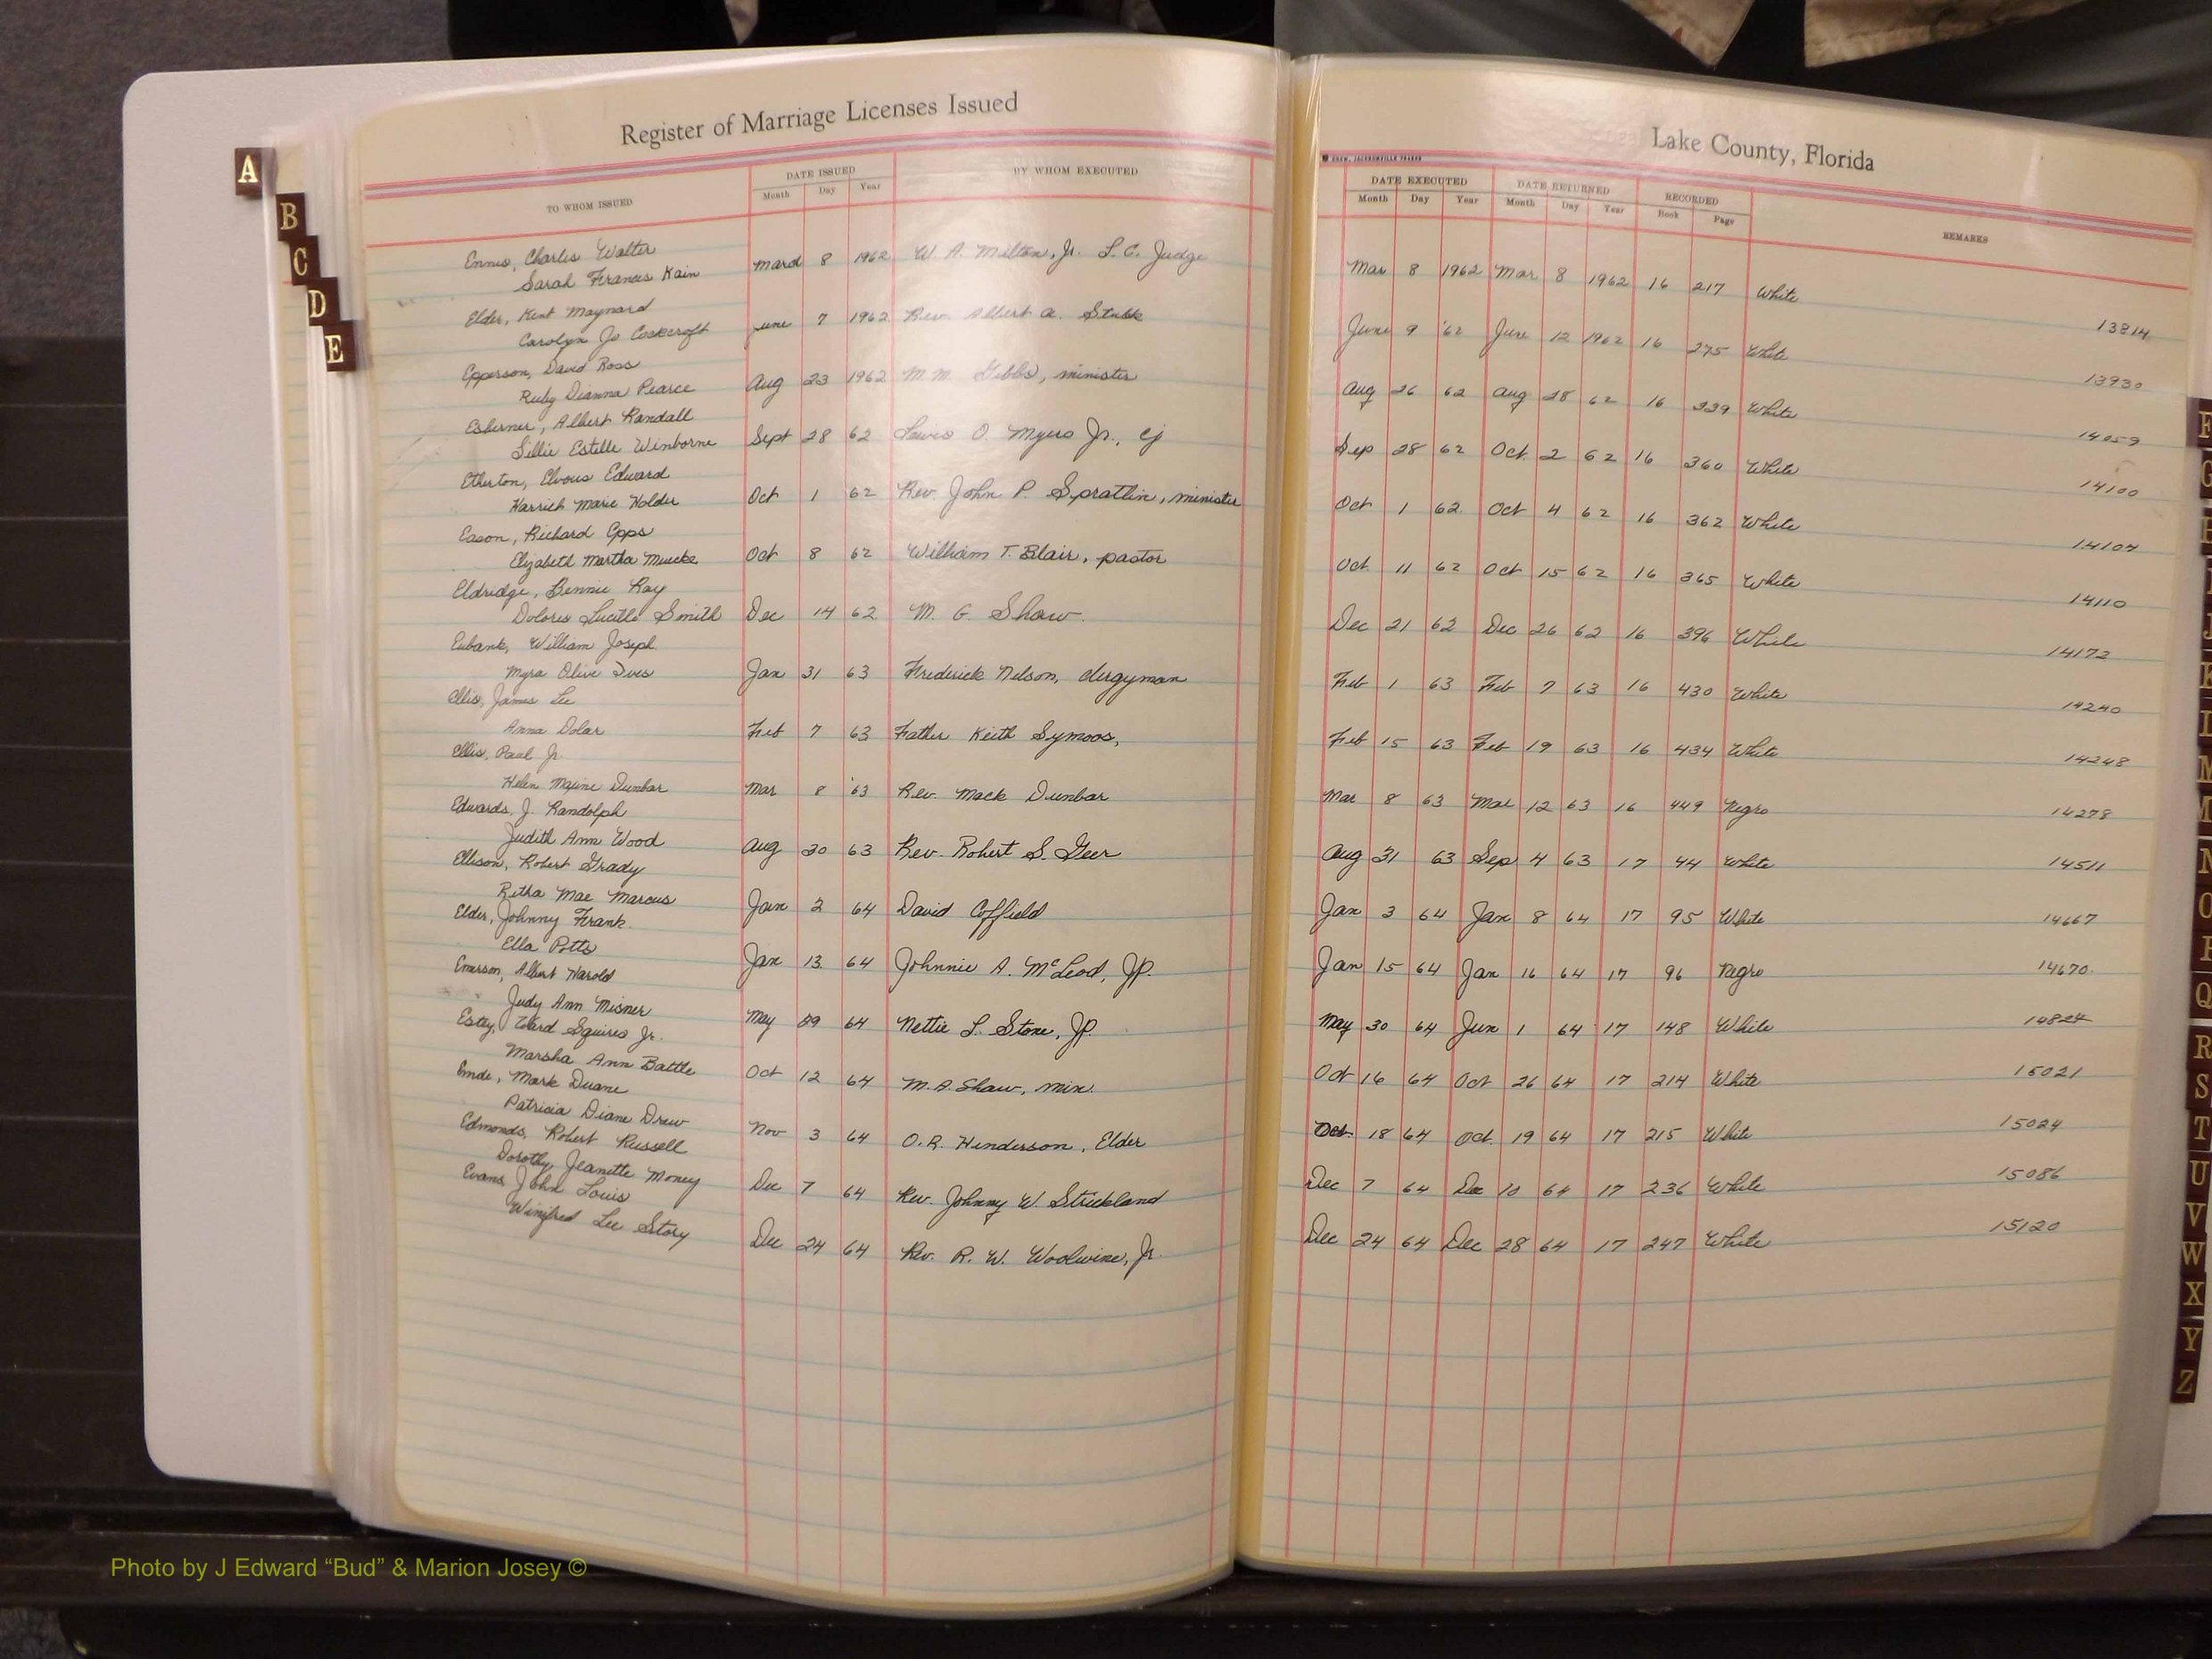 Register of Marriage Licenses Issued
TO WHOM ISSUED
DATE ISSUED
Month Day Year
BY WHOM EXECUTED
Lake County, Florida
DATE EXECUTED
Month Day Year
DATE RETURNED
Month Day Year
RECORDED
Book Page
REMARKS
Ennis, Charles Walter
Sarah Frances Kain
March 8 1962 W. A. Milton, Jr. L.C. Judge Mar 8 1962 Mar 8 1962 16 217 White
13814
Elder, Kent Maynard
Carolyn Jo
June 7 1962 Rev. Albert A. June 9 '62 June 12 1962 16 275 White
13930
Epperson, David Ross
Ruby Dianna Pearce
Aug 23 1962 M.M. Gibbs, minister Aug 26 62 Aug 28 62 16 339 White
14059
Albert Randall
Lillie Estelle Winborne
Sept 28 62 Lewis O. Myers Jr., cj Sep 28 62 Oct. 2 62 16 360 White
14100
Etherton, Elvous Edward
Harriet Marie Holder
Oct 1 62 Rev. John P. Spratlin, minister Oct 1 62 Oct 4 62 16 362 White
14104
Eason, Richard Epps
Elizabeth Martha
Oct 8 62 William T. Blair, pastor Oct. 11 62 Oct 15 62 16 365 White
14110
Eldridge, Bennie Ray
Dolores Lucille Smith
Dec 14 62 M. G. Shaw. Dec 21 62 Dec 26 62 16 396 White
14172
Eubank, William Joseph
Myra Olive Ives
Jan 31 63 Frederick Nelson, clergyman Feb 1 63 Feb 7 63 16 430 White
14240
Ellis, James Lee
Anna Dolar
Feb 7 63 Father Keith Symons, Feb 15 63 Feb 19 63 16 434 White
14248
Ellis, Paul Jr.
Helen Maxine Dunbar
Mar 8 '63 Rev. Mack Dunbar Mar 8 63 Mar 12 63 16 449 Negro
14278
Edwards, J. Randolph
Judith Ann Wood
Aug 30 63 Rev. Robert S. Geer Aug 31 63 Sep 4 63 17 44 White
14511
Ellison, Robert Grady
Retha Mae Marcus
Jan 2 64 David Coffield Jan 3 64 Jan 8 64 17 95 White
14667
Elder, Johnny Frank.
Ella Potts
Jan 13 64 Johnnie A. McLeod, JP. Jan 15 64 Jan 16 64 17 96 Negro
14670
Emerson, Albert Harold
Judy Ann Misner
May 29 64 Nettie L. Stone, JP. May 30 64 Jun 1 64 17 148 White
14824
Estey, Ward Squires Jr.
Marsha Ann Battle
Oct 12 64 M.A. Shaw, min. Oct 16 64 Oct 26 64 17 214 White
15021
Emde, Mark Duane
Patricia Diane Drew
Nov 3 64 O.R. Henderson, Elder Oct. 18 64 Oct. 19 64 17 215 White
15024
Edmonds, Robert Russell
Dorothy Jeanette Money
Dec 7 64 Rev. Johnny W. Strickland Dec 7 64 Dec 10 64 17 236 White
15086
Evans, John Louis
Winifred Lee Story
Dec 24 64 Rev. R. W. Woolwine, Jr. Dec 24 64 Dec 28 64 17 247 White
15120
A
B
C
D
E
F
G
J
K
L
M
N
O
P
Q
R
S
T
U
V
W
X
Y
Z
Photo by J Edward “Bud” & Marion Josey ©